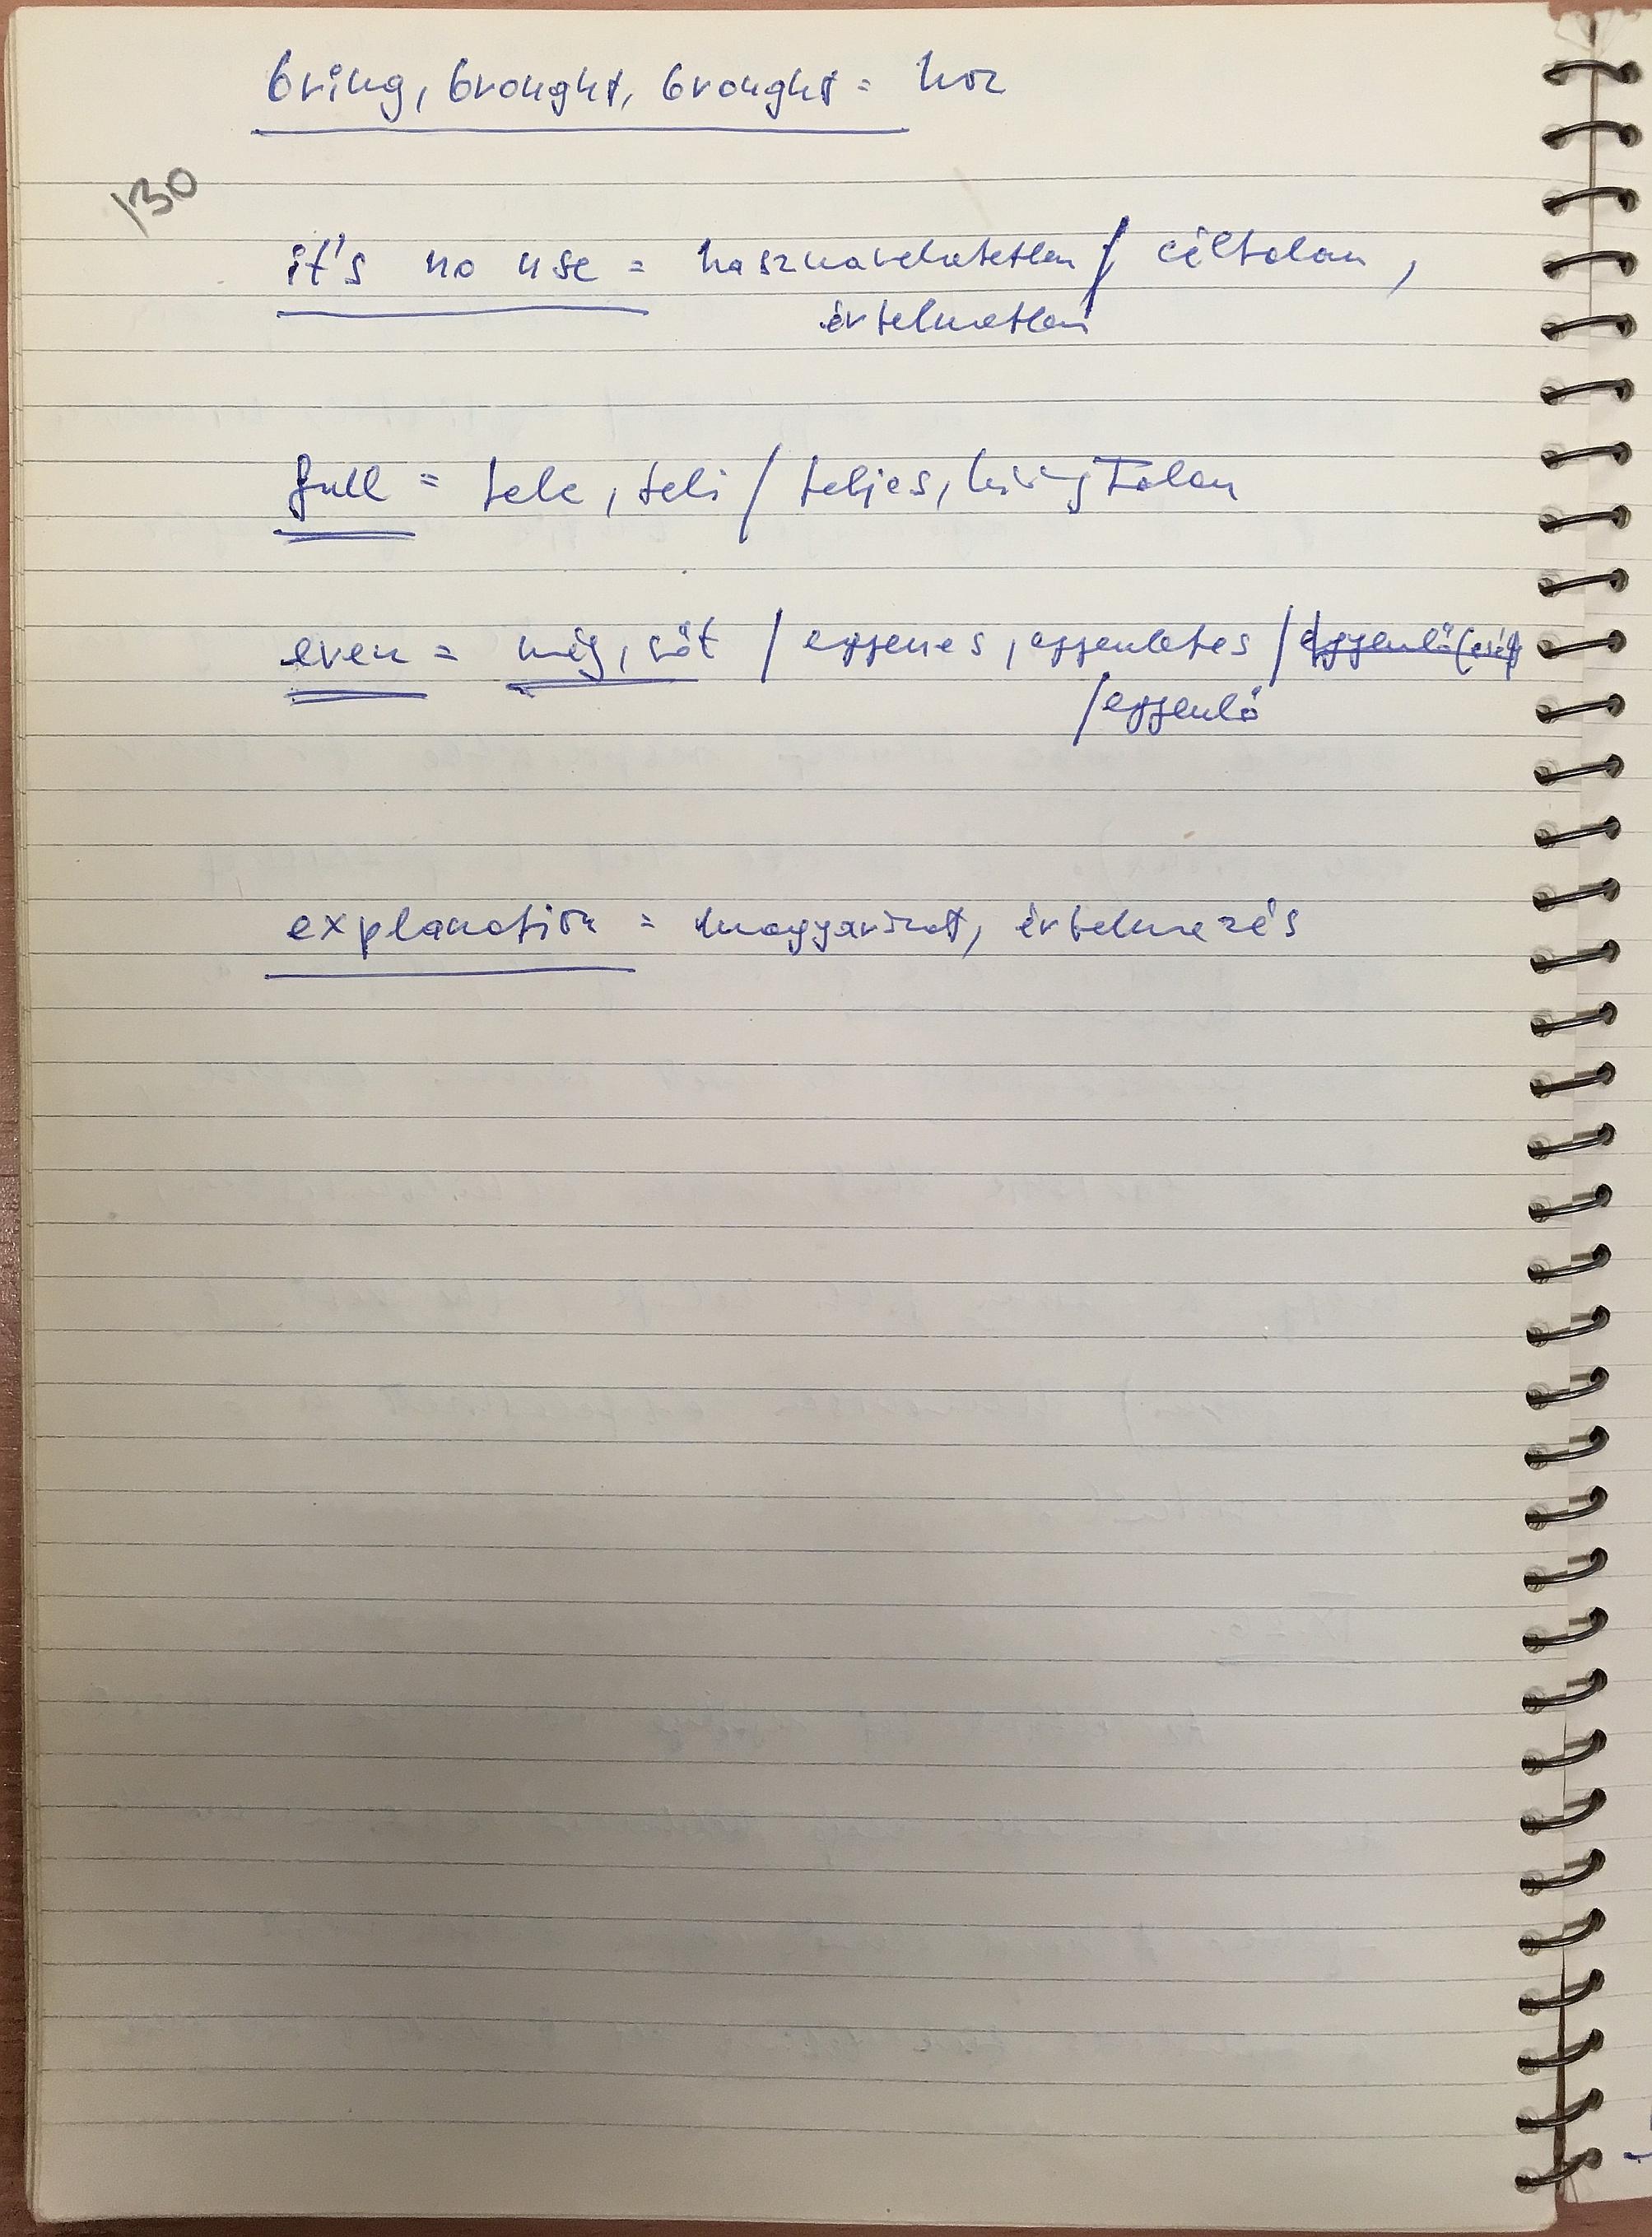 bring, brought, brought = hoz
130
it's no use = használhatatlan / céltalan,
értelmetlen
full = tele, teli / teljes, hiánytalan
even = még, sőt / egyenes, egyenletes / egyenlő
/ egyenlő
explanation = magyarázat, értelmezés